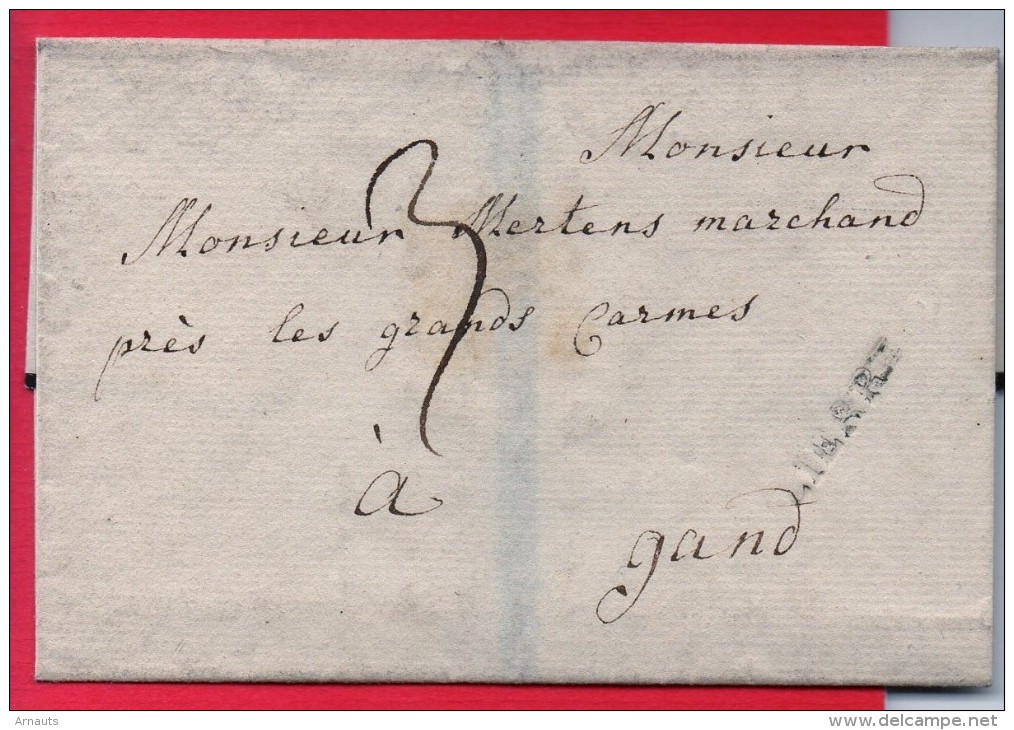 Monsieur
Monsieur Mertens marchand
près les grands Carmes
3
à
gand
LIERRE
Arnauts
delcampe.net